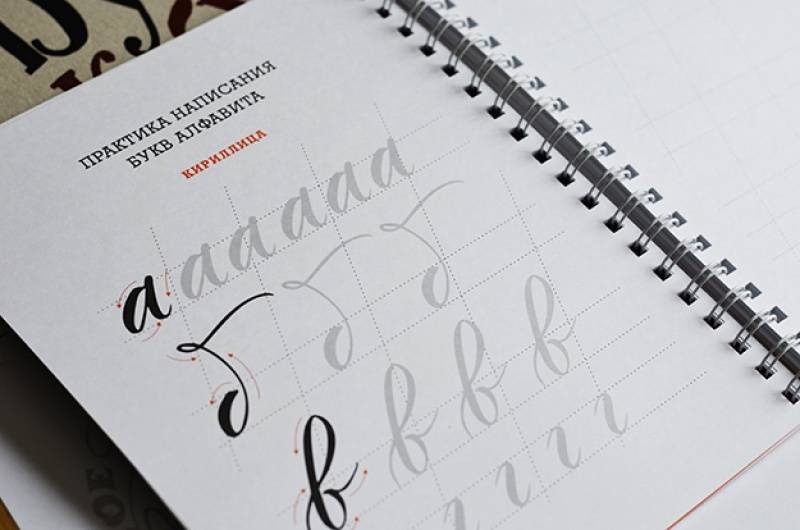 ПРАКТИКА НАПИСАНИЯ
БУКВ АЛФАВИТА
КИРИЛЛИЦА
а а а а а а а
б б б
в в в в
г г г г